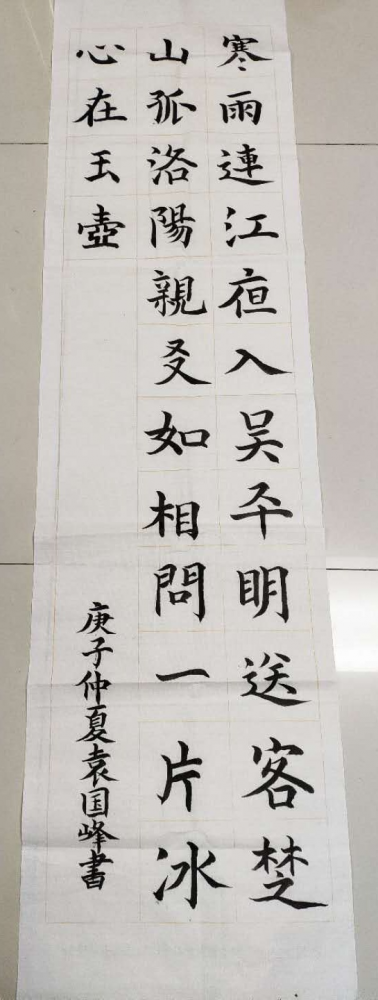 寒雨連江夜入吴平明送客楚
山孤洛陽親友如相問一片冰
心在玉壺
庚子仲夏袁国峰書